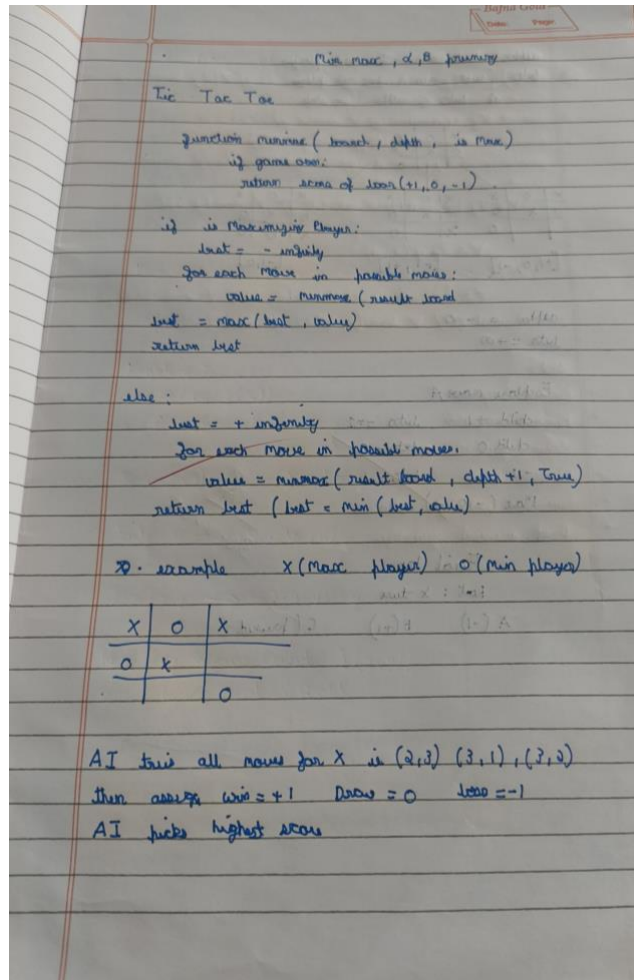 Bafna Gold
Date: Page:
Min max, α, B pruning
Tic Tac Toe
function minimax ( board, depth, is Max)
if game over:
return score of board (+1, 0, -1)
if is Maximizing Player:
best = - infinity
for each move in possible moves:
value = minmax ( result board
best = max (best, value)
return best
else:
best = + infinity
for each move in possible moves.
value = minmax ( result board, depth +1, True)
return best (best = min (best, value)
example X (Max player) O (Min player)
X O X
O X
O
AI tries all moves for X is (2,3) (3,1), (3,2)
then assign win = +1 Draw = 0 loss = -1
AI picks highest score